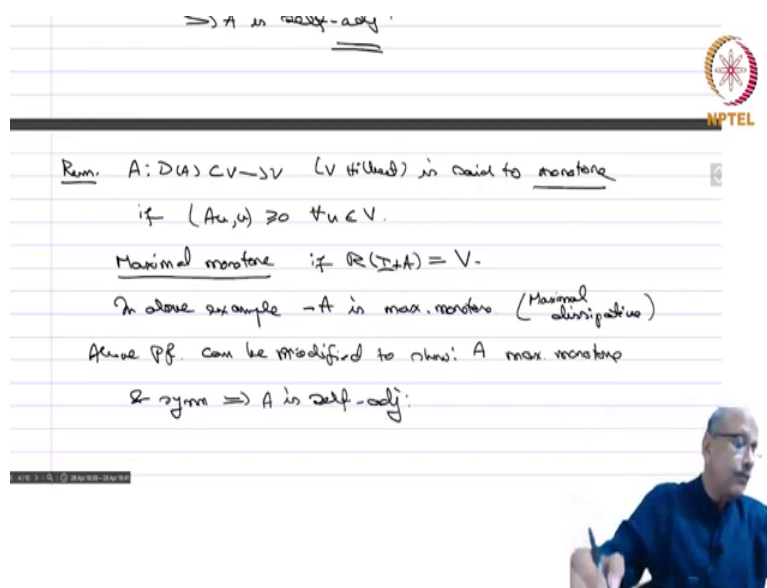 => A is self-adj.
NPTEL
Rem. A: D(A) ⊂ V → V (V Hilbert) is said to monotone
if (Au, u) ≥ 0 ∀ u ∈ V.
Maximal monotone if R(I+A) = V.
In above example -A is max. monotone (Maximal dissipative)
Above Pf. can be modified to show: A max. monotone
& symm => A is self-adj.